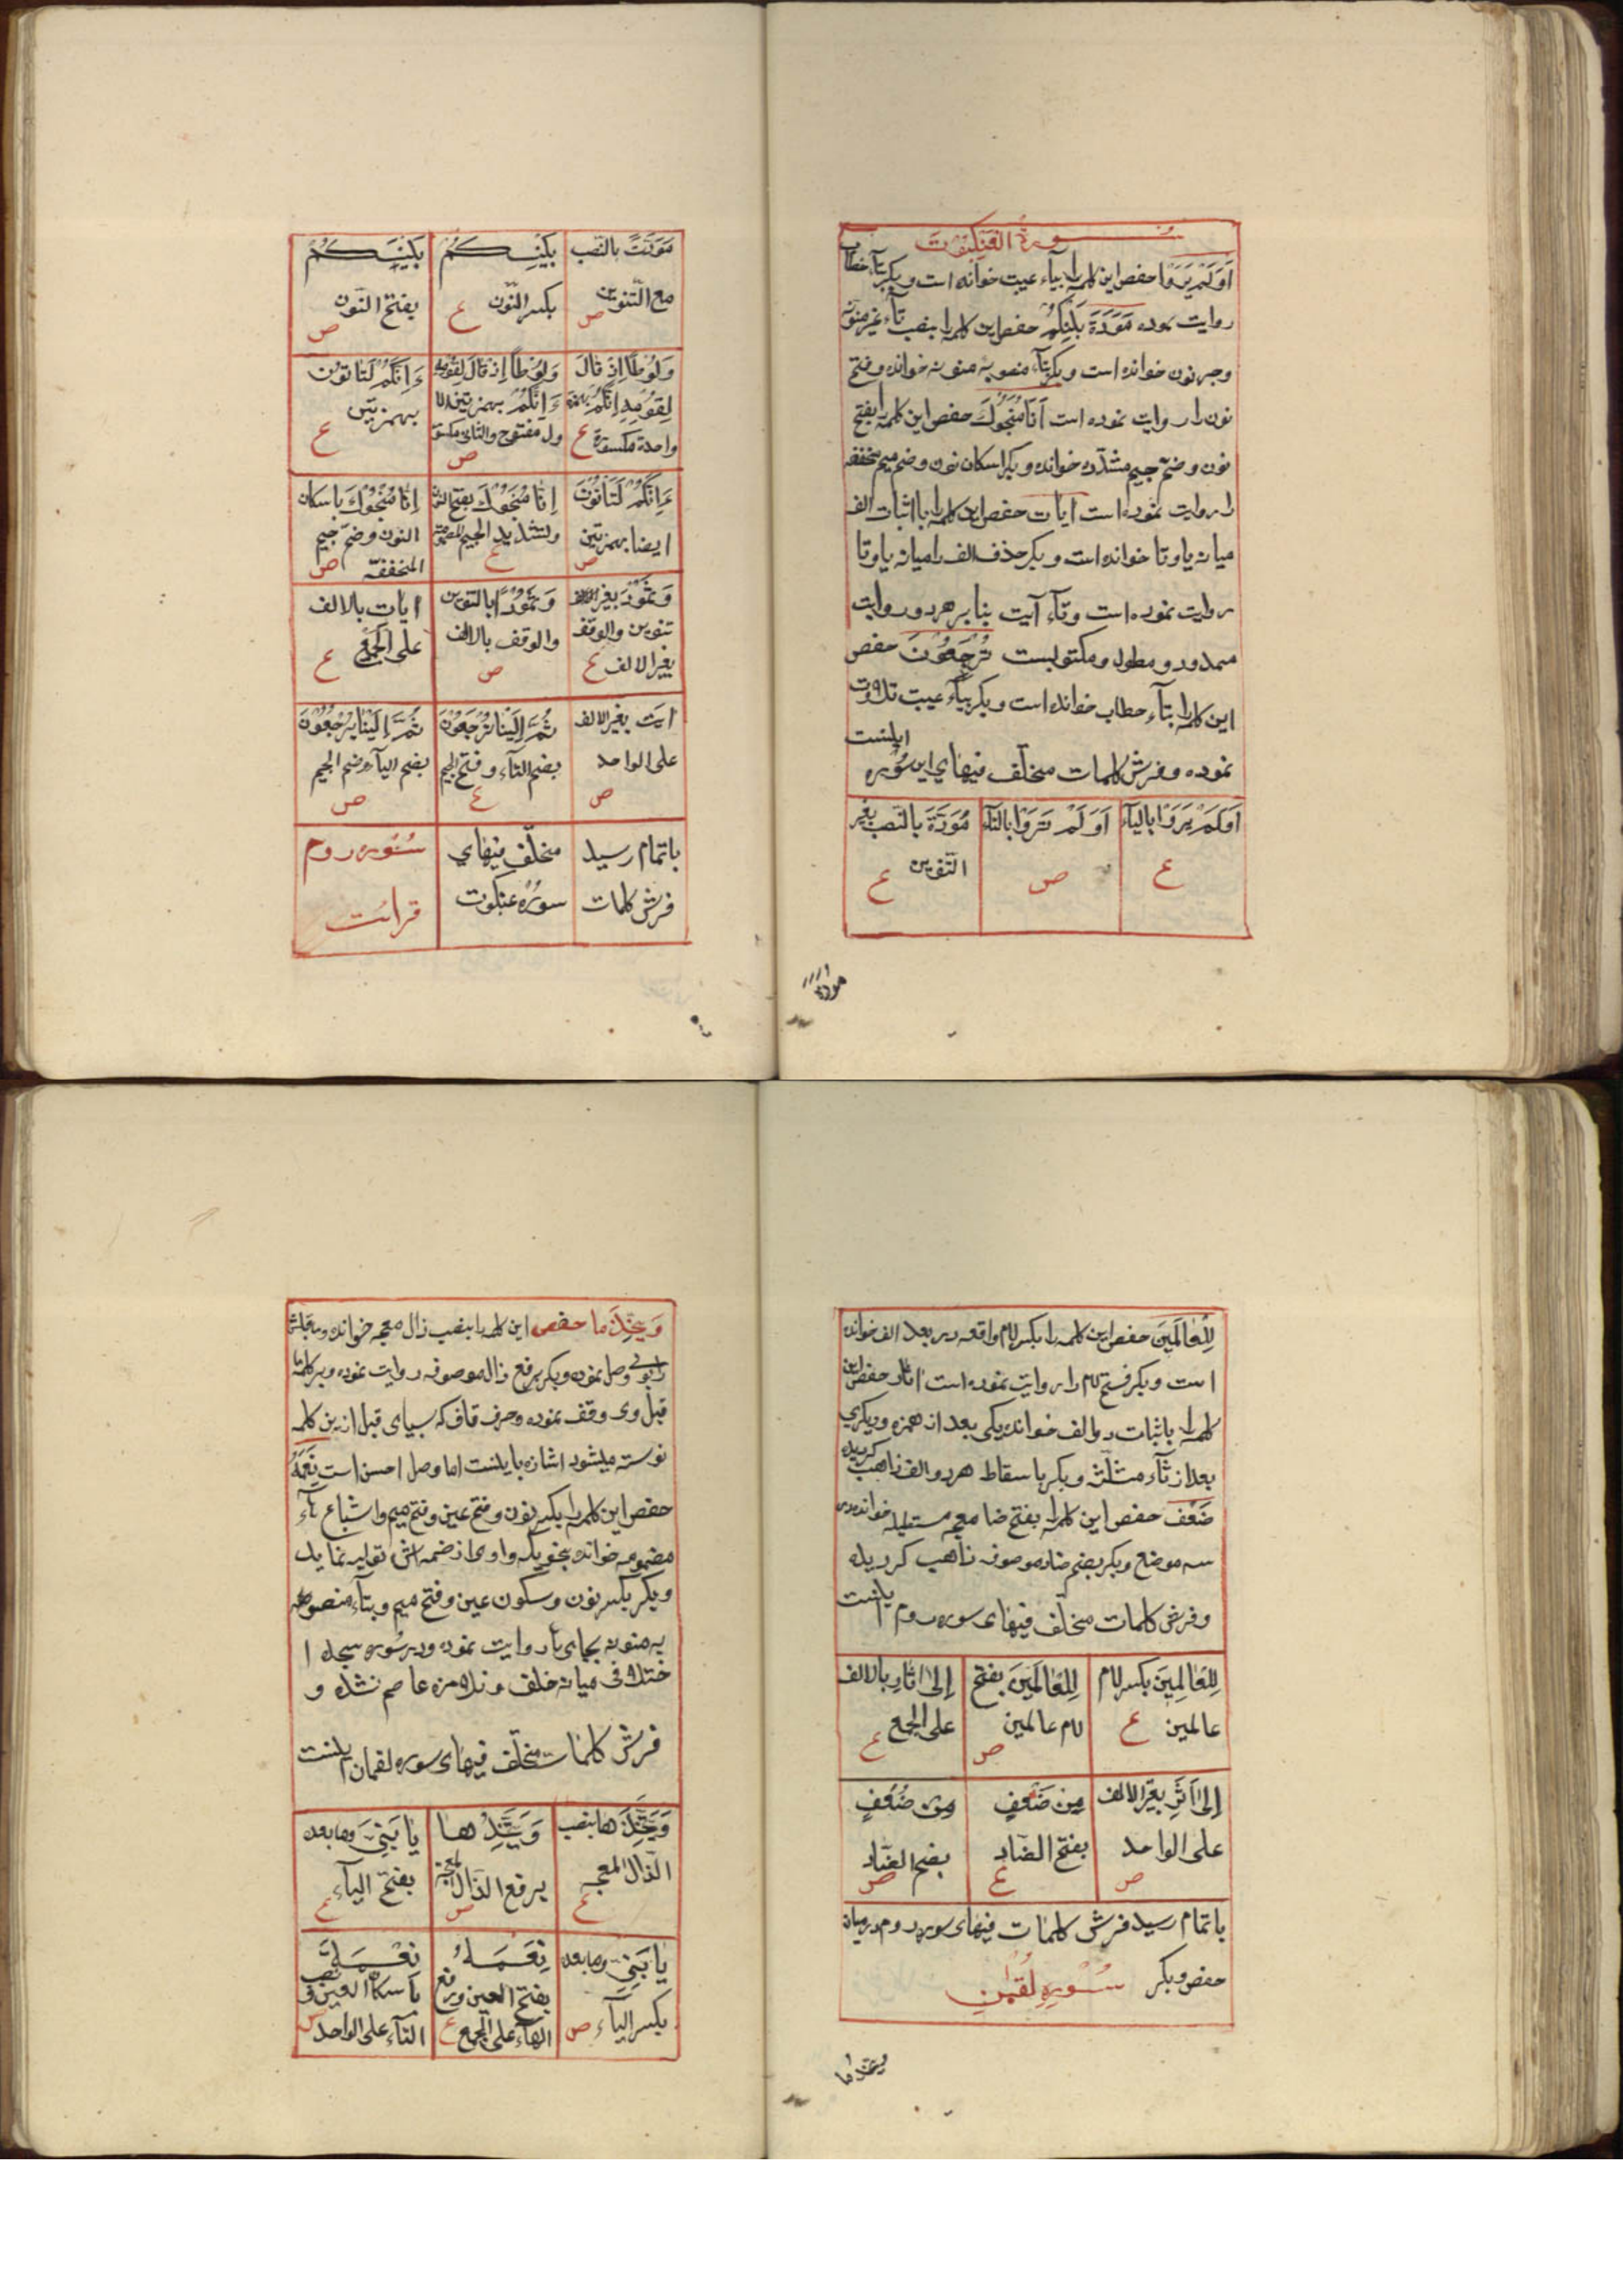 سورة العنكبوت
اَوَلَمْ يَرَوْا حفص این کلمه را بیاء عیبت خوانده است و بکر بتآء خطاب
روایت نموده مَوَدَّةَ بَيْنِكُمْ حفص این کلمه را بنصب تآء غیر منونه
وجر نون خوانده است و بکر بتآء منصوبه منونه خوانده و فتح
نون را روایت نموده است اِنَّا مُنَجُّوكَ حفص این کلمه را بفتح
نون و ضم جیم مشدّده خوانده و بکر اسکان نون و ضم میم مخففه
را روایت نموده است ایات حفص این کلمه را با اثبات الف
میانه یا و تا خوانده است و بکر حذف الف را میانه یا و تا
روایت نموده است و تآء آیت بنا بر هر دو روایت
ممدود و مطول و مکتوبست تُرْجَعُونَ حفص
این کلمه را بتآء خطاب خوانده است و بکر بیآء عیبت تلاوت
نموده و فرش کلمات مختلف فیهای این سُوره اینست
اَوَلَمْ يَرَوْا بالیآء ع
اَوَلَمْ تَرَوْا بالتآء ص
مَوَدَّةَ بالنصب بغیر التنوین ع
مودة
مَوَدَّتً بالنّصب مع التنوین ص
بَيْنِكُمْ بکسر النّون ع
بَيْنَكُمْ بفتح النّون ص
وَلُوطًا اِذْ قَالَ لِقَوْمِهِ اِنَّكُمْ بهمزة واحدة مکسورة ع
وَلُوطًا اِذْ قَالَ لِقَوْمِهِ ءَاِنَّكُمْ بهمزتین الا ول مفتوح والثانی مکسور ص
ءَاِنَّكُمْ لَتَأْتُونَ بهمزتین ع
ءَاِنَّكُمْ لَتَأْتُونَ ایضا بهمزتین ص
اِنَّا مُنَجُّوكَ بفتح النون وتشدید الجیم المضمومة ع
اِنَّا مُنْجُوكَ باسکان النون وضمّ جیم المخففّه ص
وَثَمُودَ بغیر الالف تنوین والوقف بغیر الالف ع
وَثَمُودًا بالتنوین والوقف بالالف ص
ایات بالالف علی الجمع ع
ایت بغیر الالف علی الواحد ص
ثُمَّ اِلَيْنَا تُرْجَعُونَ بضم التآء وفتح الجیم ع
ثُمَّ اِلَيْنَا يُرْجَعُونَ بضم الیآء وضم الجیم ص
باتمام رسید فرش کلمات
مختلف فیهای سورۀ عنکبوت
سُوره روم قرائت
لِلْعَالِمِينَ حفص این کلمه را بکسر لام واقعه در بعد الف خوانده
است و بکر فتح لام را روایت نموده است اٰثار حفص این
کلمه را باثبات دو الف خوانده یکی بعد از همزه و دیکری
بعد از ثآء مثلّثه و بکر باسقاط هر دو الف ذاهب کردیده
ضَعْف حفص این کلمه را بفتح ضا معجمه مستطیله خوانده در
سه موضع و بکر بضم ضاد موصوفه ذاهب کردیده
و فرش کلمات مختلف فیهای سوره روم اینست
لِلْعَالِمِينَ بکسر لام عالمین ع
لِلْعَالَمِينَ بفتح لام عالمین ص
اِلٰی اٰثَارِ بالالف علی الجمع ع
اِلٰی اَثَرِ بغیر الالف علی الواحد ص
مِن ضَعْفٍ بفتح الضاد ع
مِن ضُعْفٍ بضم الضاد ص
باتمام رسید فرش کلمات فیهای سوره روم در میان
حفص و بکر سُورهِ لُقمٰن
ویتخذها
وَيَتَّخِذَهَا حفص این کلمه را بنصب ذال معجمه خوانده و ماقبلش
را بوی وصل نموده و بکر برفع ذال موصوفه روایت نموده و بر کلمۀ
قبل وی وقف نموده و حرف قاف که سیاهی قبل از ین کلمه
نوسته میشود اشاره باینست اما وصل احسن است نِعَمَهُ
حفص این کلمه را بکسر نون و فتح عین و فتح میم و اشباع هآء
مضمومه خوانده بنحویکه واوی از ضمه اش تولید نماید
و بکر بکسر نون و سکون عین و فتح میم و بتآء منصوبه
یه منونه بجای هآء روایت نموده و در سُوره سجده ا
ختلافی میانه خلف و تلامزه عاصم نشده و
فرش کلمات مختلف فیهای سوره لقمان اینست
وَيَتَّخِذَهَا بنصب الذال المعجمه ع
وَيَتَّخِذُهَا برفع الذال المعجمه ص
یَا بُنَیَّ وما بعد بفتح الیآء ع
یَا بُنَیِّ وما بعد بکسر الیآء ص
نِعَمَهُ بفتح العین ورفع الهآء علی الجمع ع
نِعْمَةً باسکان العین ونصب التآء علی الواحد ص